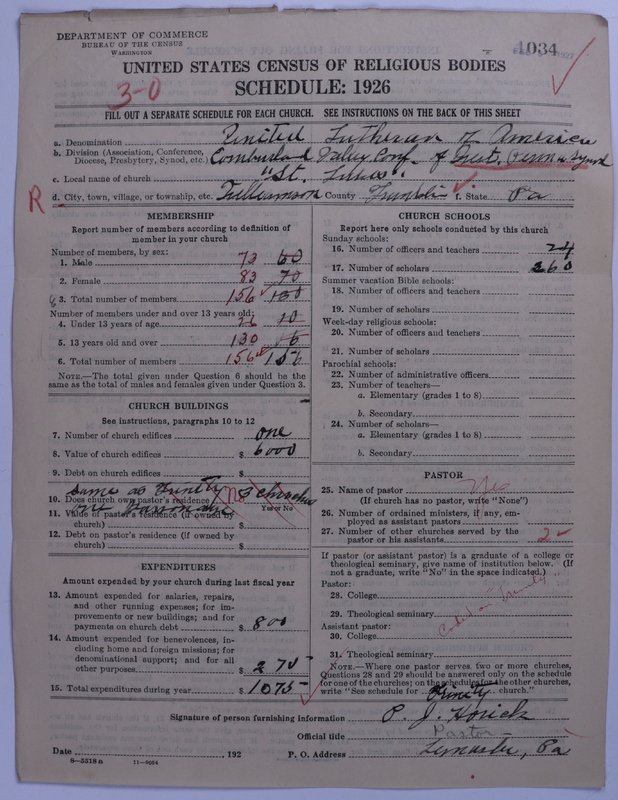 DEPARTMENT OF COMMERCE
BUREAU OF THE CENSUS
WASHINGTON
1034
UNITED STATES CENSUS OF RELIGIOUS BODIES
SCHEDULE: 1926
3-0
FILL OUT A SEPARATE SCHEDULE FOR EACH CHURCH. SEE INSTRUCTIONS ON THE BACK OF THIS SHEET
a. Denomination United Lutheran of America
b. Division (Association, Conference, Diocese, Presbytery, Synod, etc.) Valley Conf. of
c. Local name of church "St.
R d. City, town, village, or township, etc. County f. State Pa
MEMBERSHIP
Report number of members according to definition of
member in your church
Number of members, by sex:
1. Male 73 60
2. Female 83 70
3. Total number of members 156 130
Number of members under and over 13 years old:
4. Under 13 years of age 26 10
5. 13 years old and over 130
6. Total number of members 156 156
NOTE.—The total given under Question 6 should be the
same as the total of males and females given under Question 3.
CHURCH BUILDINGS
See instructions, paragraphs 10 to 12
7. Number of church edifices one
8. Value of church edifices $ 6000
9. Debt on church edifices $
Same as Trinity 3 churches
10. Does church own pastor's residence? no
Yes or No
one
11. Value of pastor's residence (if owned by
church) $
12. Debt on pastor's residence (if owned by
church) $
EXPENDITURES
Amount expended by your church during last fiscal year
13. Amount expended for salaries, repairs,
and other running expenses; for im-
provements or new buildings; and for
payments on church debt $ 800
14. Amount expended for benevolences, in-
cluding home and foreign missions; for
denominational support; and for all
other purposes $ 275
15. Total expenditures during year $ 1075
CHURCH SCHOOLS
Report here only schools conducted by this church
Sunday schools:
16. Number of officers and teachers 24
17. Number of scholars 260
Summer vacation Bible schools:
18. Number of officers and teachers
19. Number of scholars
Week-day religious schools:
20. Number of officers and teachers
21. Number of scholars
Parochial schools:
22. Number of administrative officers
23. Number of teachers—
a. Elementary (grades 1 to 8)
b. Secondary
24. Number of scholars—
a. Elementary (grades 1 to 8)
b. Secondary
PASTOR
25. Name of pastor Yes
(If church has no pastor, write "None")
26. Number of ordained ministers, if any, em-
ployed as assistant pastors
27. Number of other churches served by the
pastor or his assistants 2
If pastor (or assistant pastor) is a graduate of a college or
theological seminary, give name of institution below. (If
not a graduate, write "No" in the space indicated.)
Pastor:
28. College
29. Theological seminary
Coded on Trinity
Assistant pastor:
30. College
31. Theological seminary
NOTE.—Where one pastor serves two or more churches,
Questions 28 and 29 should be answered only on the schedule
for one of the churches; on the schedules for the other churches,
write "See schedule for Trinity church."
Signature of person furnishing information P. J. Horick
Official title Pastor
Date , 192 P. O. Address Lemaster, Pa
8-5518 a 11-9064